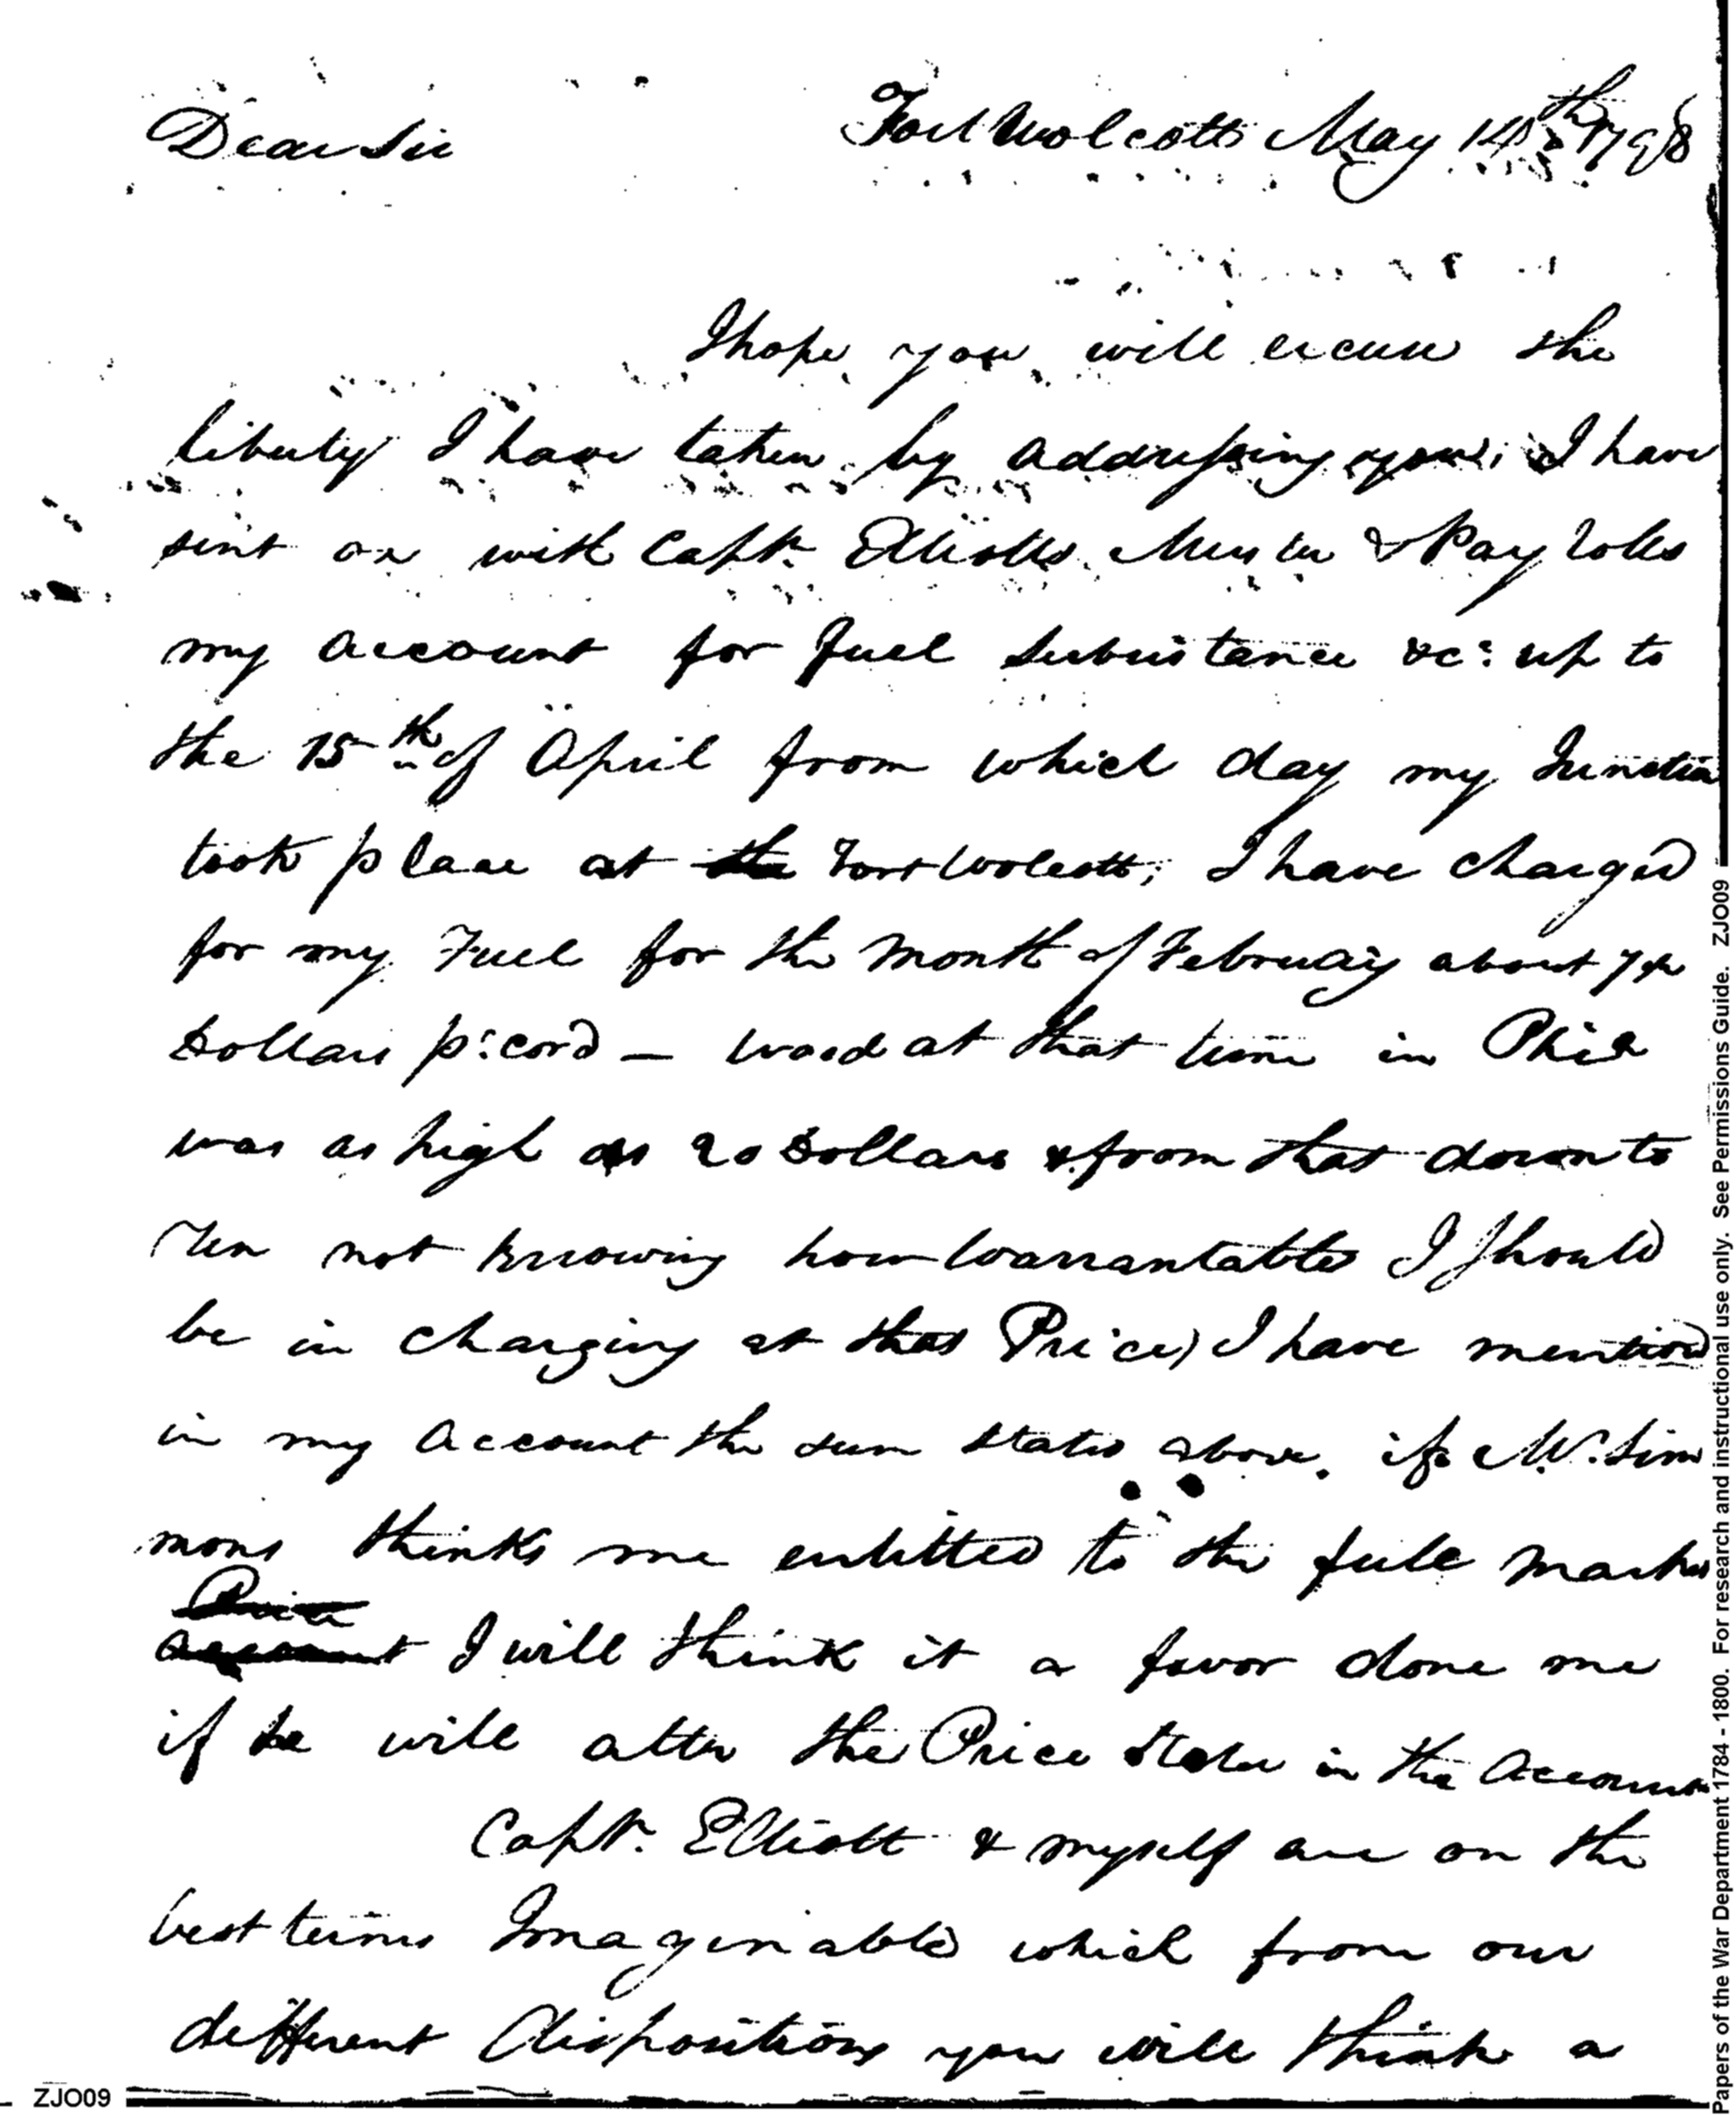 Dear Sir Fort Wolcott May 14th 1798
I hope you will excuse the
liberty I have taken by addressing you; I have
sent on with Capt. Elliotts Muster & Pay roles
my account for fuel Subsistance &c: up to
the 15th of April from which day my Junction
took place at the Fort Wolcott; I have charged
for my Fuel for the Month of February about
Dollars p: cord — wood at that time in Phila
was as high as 20 Dollars & from that down to
Ten not knowing how warrantable I should
be in charging at that Price, I have mentiond
in my account the sum states above. if Mr. Sim
mons thinks me entitled to the full market
Price
account I will think it a favor done me
if he will alter the Price states in the Account
Capt. Elliott & myself are on the
best terms Imaginable which from our
different Dispositions you will think a
ZJO09
Papers of the War Department 1784 - 1800. For research and instructional use only. See Permissions Guide. ZJO09